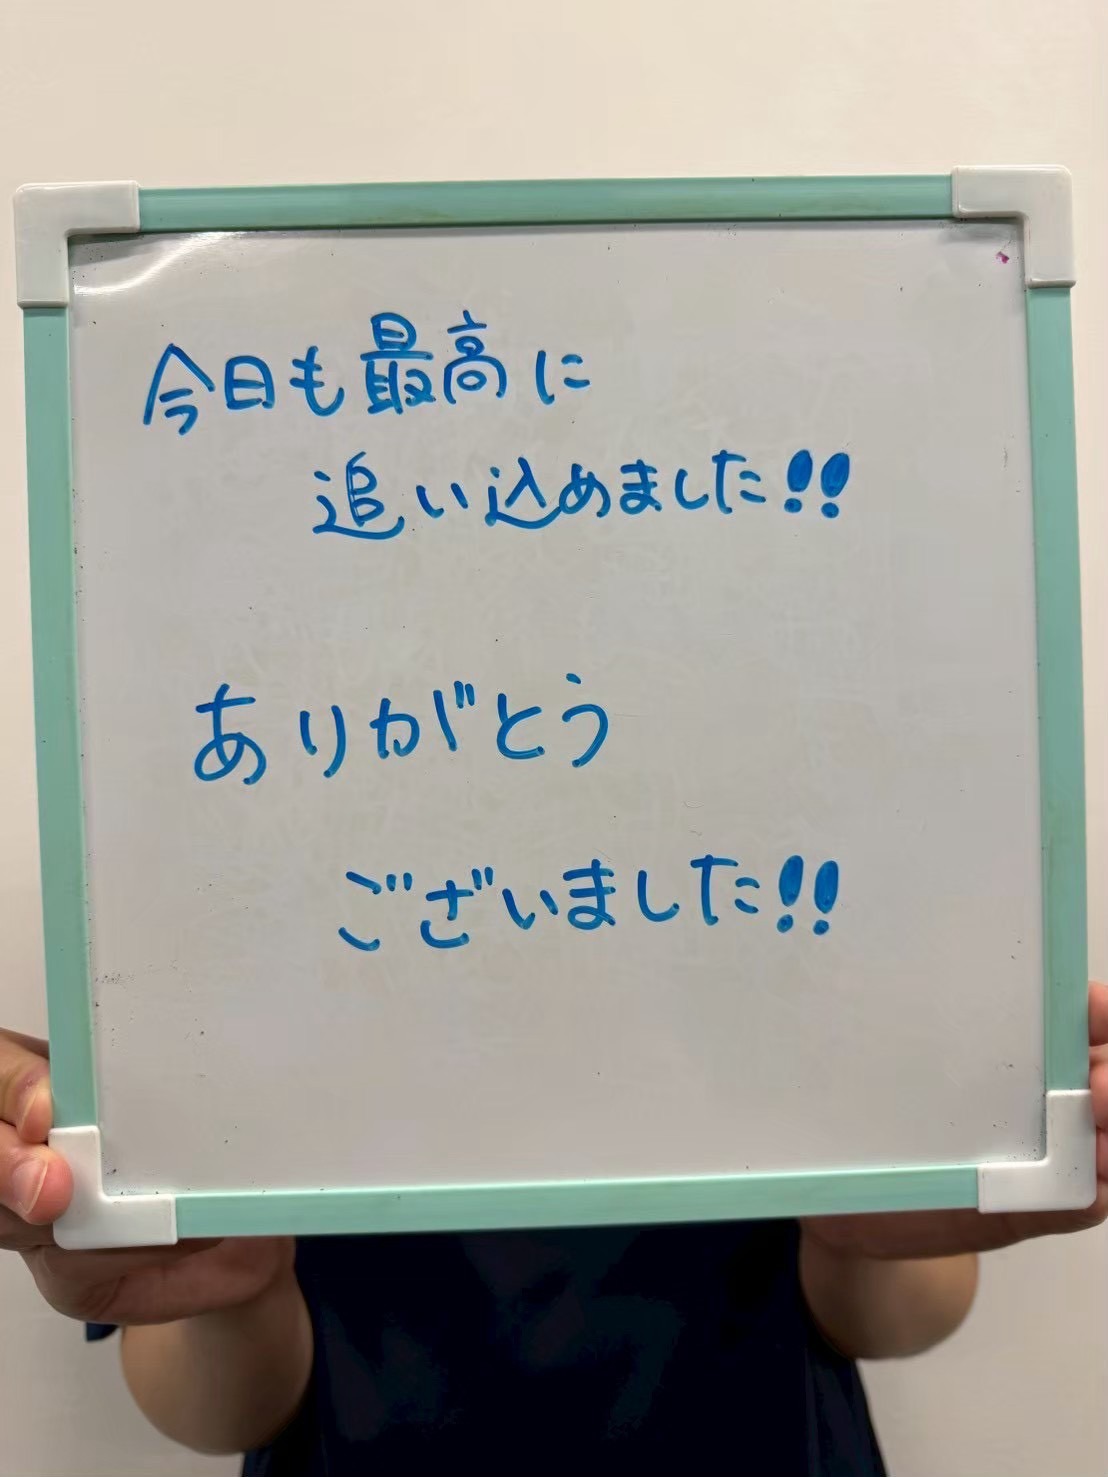 今日も最高に
追い込めました!!
ありがとう
ございました!!